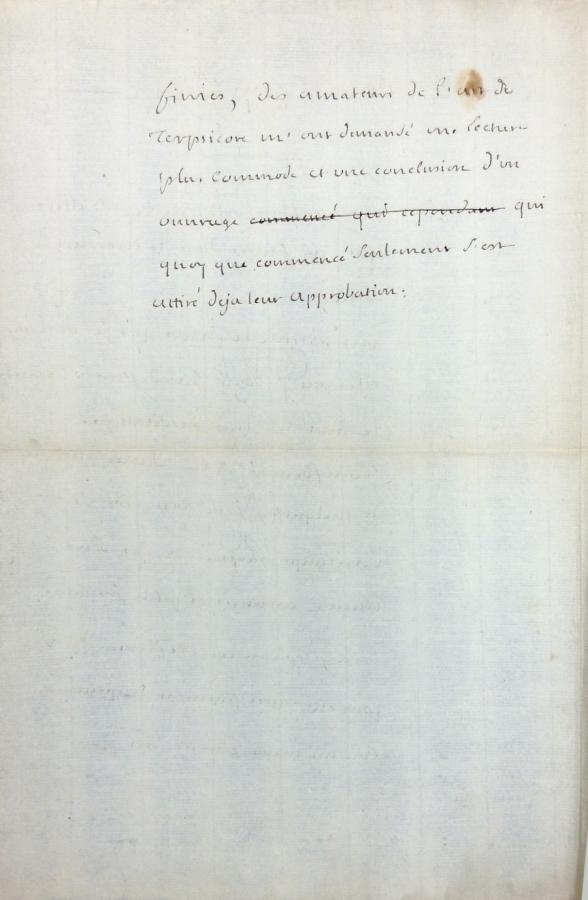 finies, des amateurs de l'art de
Terpsicore m'ont demandé une lecture
plus commode et une conclusion d'un
ouvrage commencé qui cependant qui
quoy que commencé seulement s'est
attiré deja leur approbation.